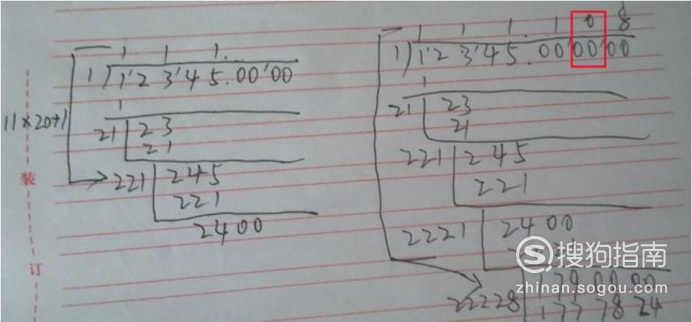 1 1 1.
1 1'2 3'4 5.00'00
1
21 23
21
11×20+1
221 245
221
2400
1 1 1. 1 0 8
1 1'2 3'4 5.00'00'00
1
21 23
21
221 245
221
2221 2400
22228
1 7 7 8 24
装
订
搜狗指南
zhinan.sogou.com